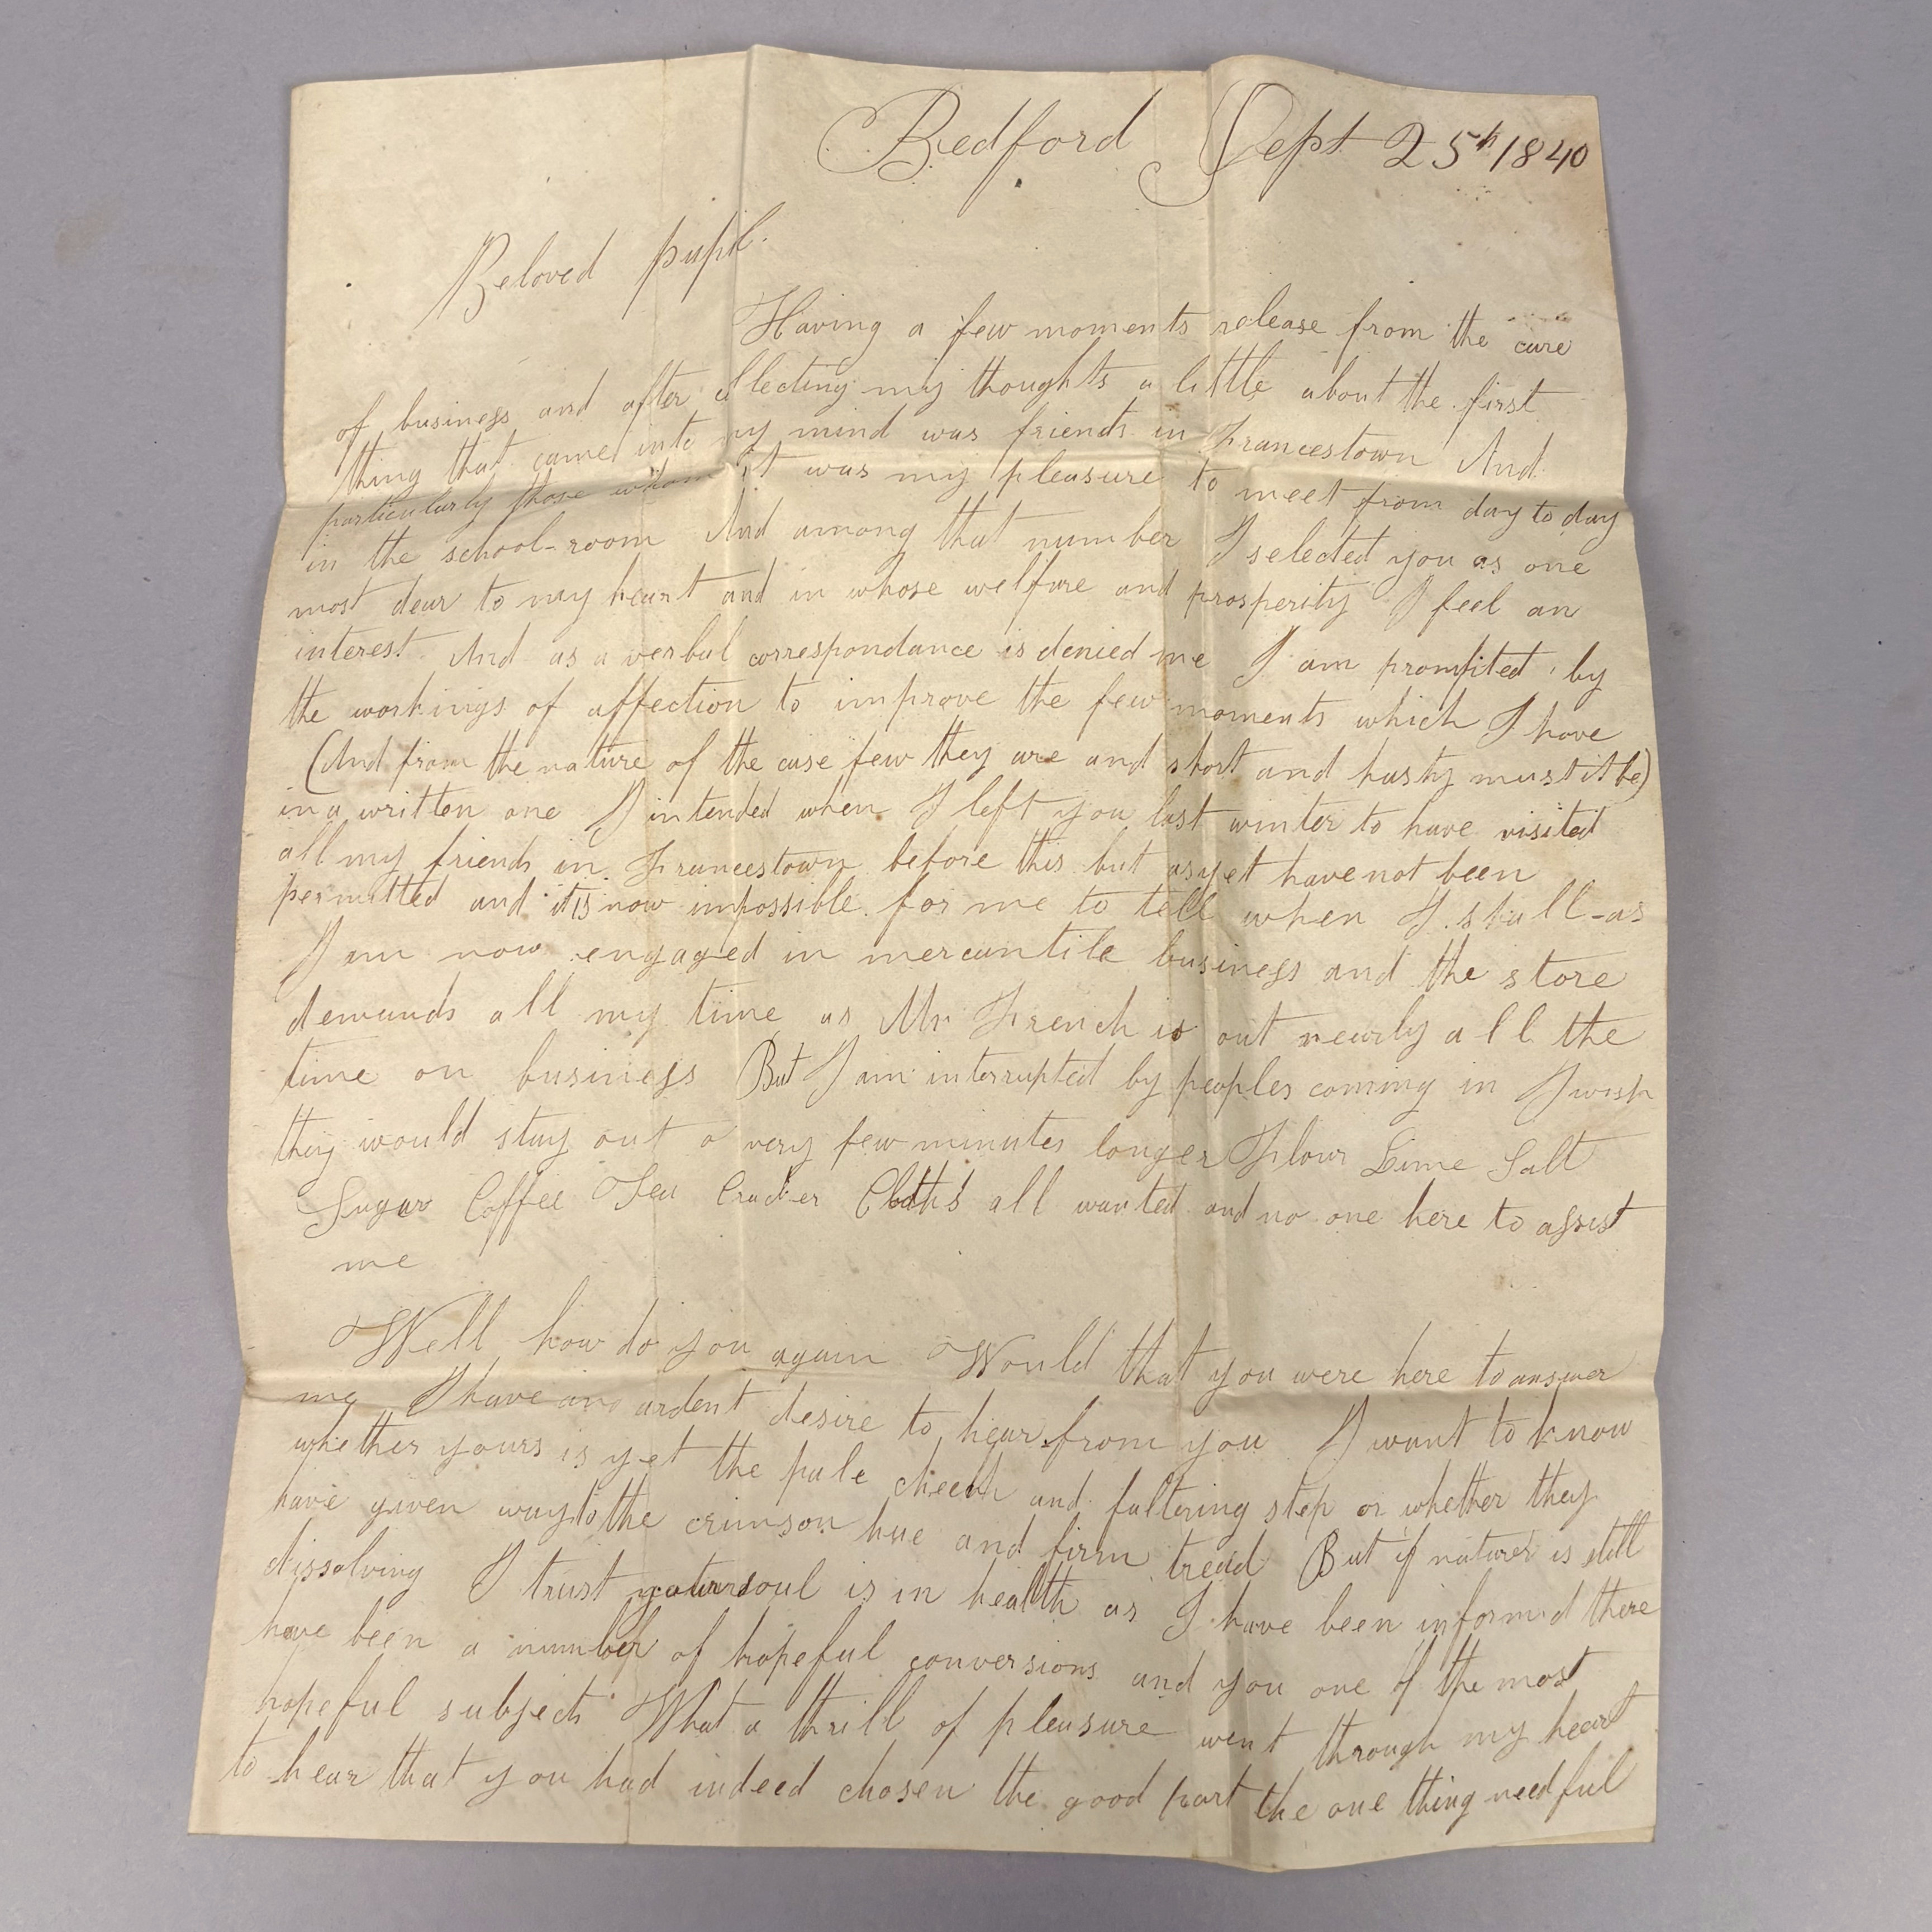 Bedford Sept 25th 1840
Beloved pupil.
Having a few moments release from the care
of business and after collecting my thoughts a little about the first
thing that came into my mind was friends in Francestown And
particularly those whom it was my pleasure to meet from day to day
in the school-room And among that number I selected you as one
most dear to my heart and in whose welfare and prosperity I feel an
interest. And as a verbal correspondance is denied me I am prompted by
the workings of affection to improve the few moments which I have
(And from the nature of the case few they are and short and hasty must it be)
in a written one I intended when I left you last winter to have visited
all my friends in Francestown before this but as yet have not been
permitted and it is now impossible for me to tell when I shall - as
I am now engaged in mercantile business and the store
demands all my time as Mr French is out nearly all the
time on business But I am interrupted by peoples coming in I wish
they would stay out a very few minutes longer Flour Lime Salt
Sugar Coffee Tea Cracker Cloths all wanted and no one here to assist
me
Well how do you again Would that you were here to answer
me I have an ardent desire to hear from you I want to know
whether yours is yet the pale cheek and faltering step or whether they
have given way to the crimson hue and firm tread But if nature is still
dissolving I trust your soul is in health as I have been informd there
have been a number of hopeful conversions and you one of the most
hopeful subjects What a thrill of pleasure went through my heart
to hear that you had indeed chosen the good part the one thing needful